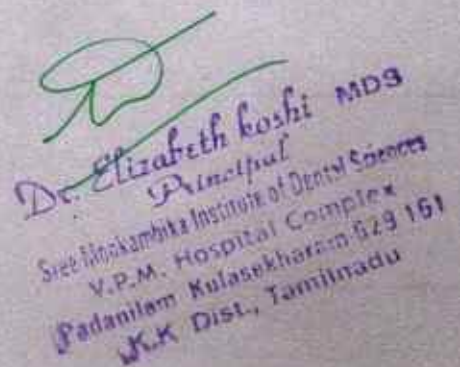 Dr. Elizabeth koshi MDS
Principal
Sree Mookambika Institute of Dental Sciences
V.P.M. Hospital Complex
Padanilam Kulasekharam 629 161
K.K Dist., Tamilnadu